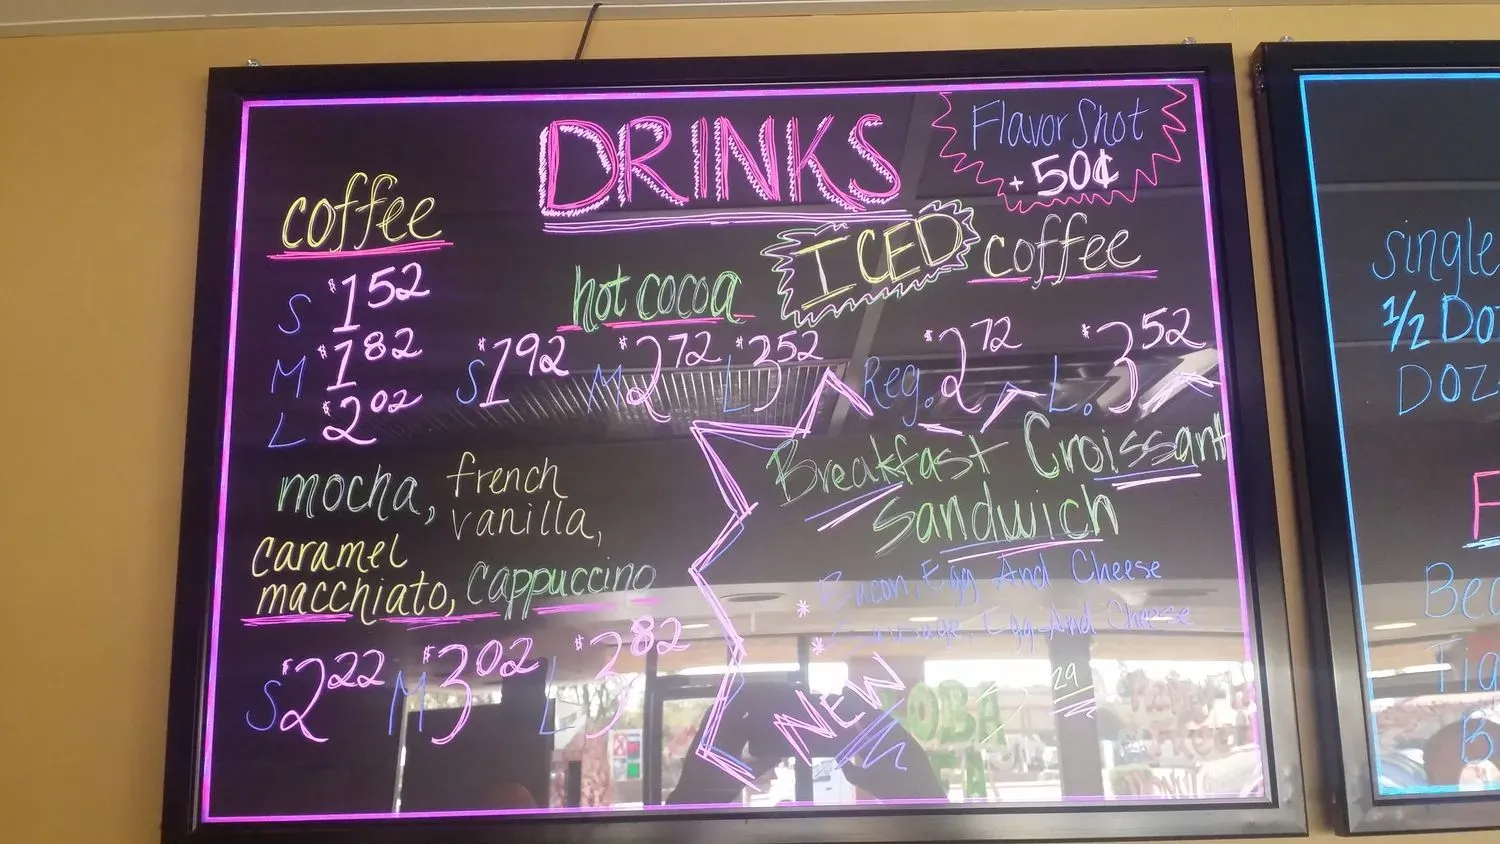 DRINKS
Flavor Shot
+ 50¢
coffee
S $1 52
M $1 82
L $2 02
hot cocoa
S $1 92 M $2 72 L $3 52
ICED coffee
Reg. $2 72 L. $3 52
mocha, french
vanilla,
caramel
macchiato, cappuccino
S $2 22 M $3 02 L $3 82
Breakfast Croissant
Sandwich
* Bacon, Egg And Cheese
* Sausage, Egg And Cheese
NEW
29
OBA
Single
1/2 Do
DOZ
F
Be
Tig
B